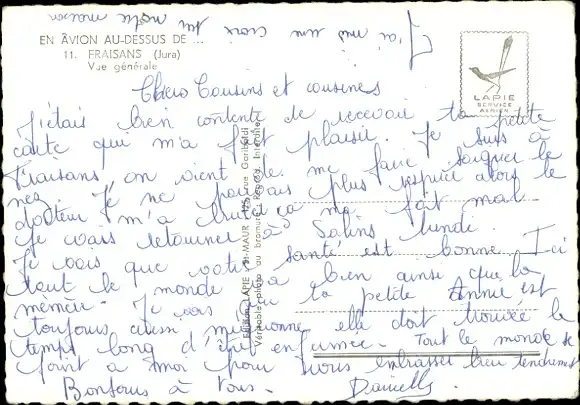 J'ai mis une croix sur notre maison
EN AVION AU-DESSUS DE ...
11. FRAISANS (Jura)
Vue générale
LAPIE
SERVICE
AÉRIEN
Chers Cousins et cousines
J'étais bien contente de recevoir ta petite
carte qui m'a fait plaisir. Je suis à
Fraisans, on vient de me faire soigner le
nez. Je ne pouvais plus respirer alors le
docteur m'a brulé ça me fait mal.
Je vais retourner à Salins lundi.
Je vois que votre santé est bonne. Ici
tout le monde va bien ainsi que la
mémère. Je vois que la petite Annie est
toujours aussi mignonne elle doit trouver le
temps long d'être enfermée. Tout le monde se
joint à moi pour vous embrasser bien tendrement
Bonjour à tous. Danielle.
Éditions LAPIE, St-MAUR, rue Garibaldi
Véritable photo au bromure. Reprod. Interdite